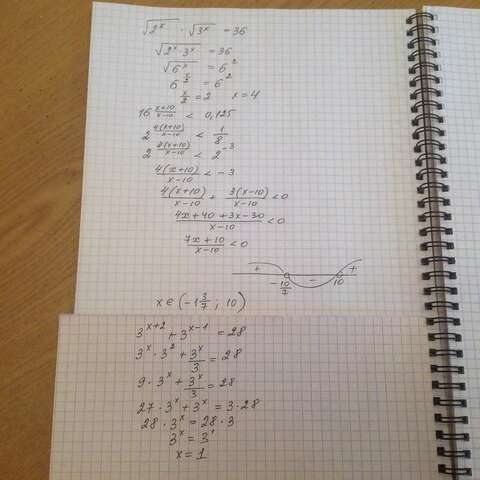 √2^x · √3^x = 36
√2^x · 3^x = 36
√6^x = 6^2
6^(x/2) = 6^2
x/2 = 2 x = 4
16^((x+10)/(x-10)) < 0,125
2^(4(x+10)/(x-10)) < 1/8
2^(4(x+10)/(x-10)) < 2^-3
4(x+10)/(x-10) < -3
4(x+10)/(x-10) + 3(x-10)/(x-10) < 0
(4x+40+3x-30)/(x-10) < 0
(7x+10)/(x-10) < 0
+ - +
-10/7 10
x ∈ (-1 3/7 ; 10)
3^(x+2) + 3^(x-1) = 28
3^x · 3^2 + 3^x/3 = 28
9 · 3^x + 3^x/3 = 28
27 · 3^x + 3^x = 3 · 28
28 · 3^x = 28 · 3
3^x = 3^1
x = 1